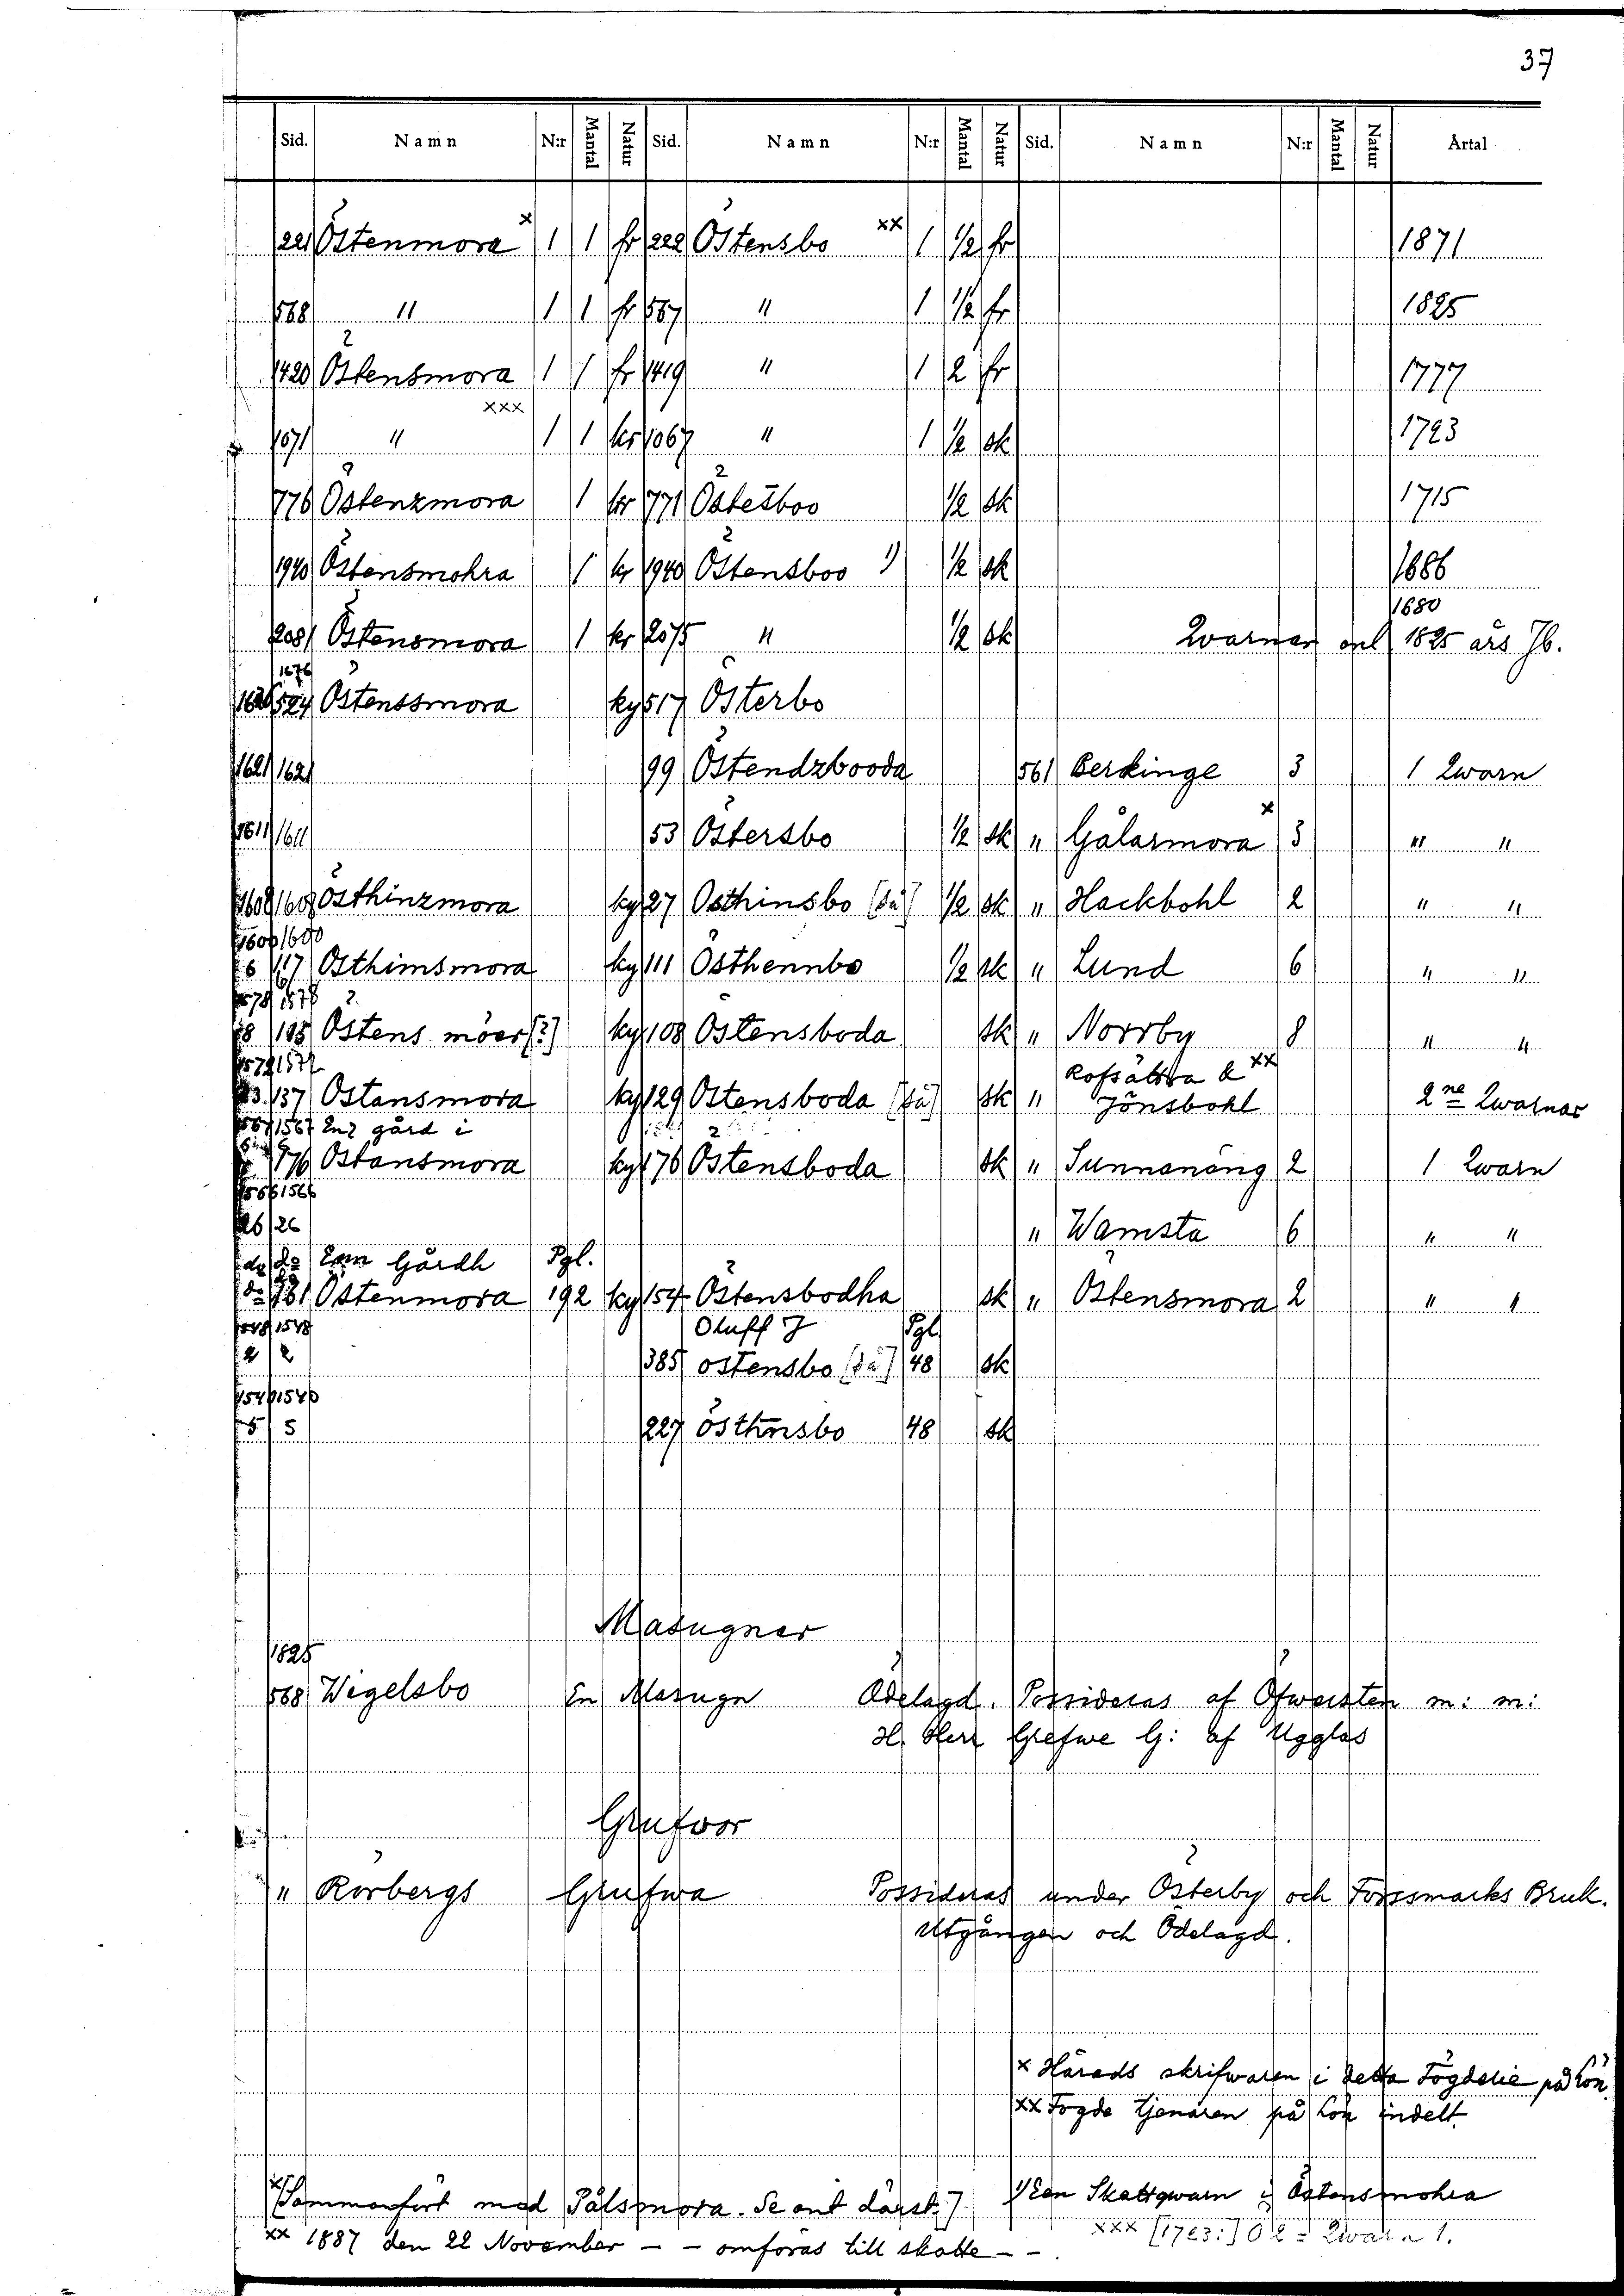 37
Sid. Namn N:r Mantal Natur Sid. Namn N:r Mantal Natur Sid. Namn N:r Mantal Natur Årtal
221 Östenmora x 1 1 fr 222 Östensbo xx 1 1/2 fr 1871
568 " 1 1 fr 567 " 1 1/2 fr 1825
1420 Östensmora 1 1 fr 1419 " 1 2 fr 1777
1071 " xxx 1 1 kr 1067 " 1 1/2 sk 1723
776 Östenzmora 1 kr 771 Östesboo 1/2 sk 1715
1940 Östensmohra 1 kr 1940 Östensboo 1) 1/2 sk 1686
1680
2081 Östensmora 1 kr 2075 " 1/2 sk Qvarnar enl 1825 års Jb.
1676
524 Östenssmora ky 517 Österbo
1621 1621 99 Östendzbooda 561 Berkinge 3 1 Qwarn
1611 1611 53 Östersbo 1/2 sk " Gålarmora x 3 " "
1608 1608 Östhinzmora ky 27 Osthinsbo [så] 1/2 sk " Hackbohl 2 " "
1600 1600
6 117 Osthimsmora ky 111 Östhennbo 1/2 sk " Lund 6 " "
1578 1578
8 113 Östens möer [?] ky 108 Östensboda sk " Norrby 8 " "
1572 1572 Rofsättra & xx
3 137 Ostansmora ky 129 Ostensboda [så] sk " Jönsbohl 2ne Qwarnar
1567 1567 En gård i
176 Ostansmora ky 176 Östensboda sk " Sunnanäng 2 1 Qwarn
1566 1566
26 26 " Wamsta 6 " "
do do Enn Gårdh Pgl.
do 161 Östenmora 192 ky 154 Östensbodha sk " Östensmora 2 " "
1548 1548 Oluff J Pgl
2 2 385 ostensbo [så] 48 sk
1540 1540
5 5 227 östhnsbo 48 sk
Masugner
1825
568 Wigelsbo En Masugn Ödelagd. Possideras af Öfwersten m: m:
H. Herr Grefwe G: af Ugglas
Grufvor
" Rörbergs Grufwa Possideras under Österby och Forssmarks Bruk.
Utgången och Ödelagd.
x Härads skrifwaren i detta Fögderie på Lön.
xx Fogde tjenaren på Lön indelt.
x [Sammanfört med Pålsmora. Se ant därst.] 1) Een Skattqwarn i Östensmohra
xx 1887 den 22 November – – omföras till skatte – –. xxx [1723:] Ö 2 = Qwarn 1.